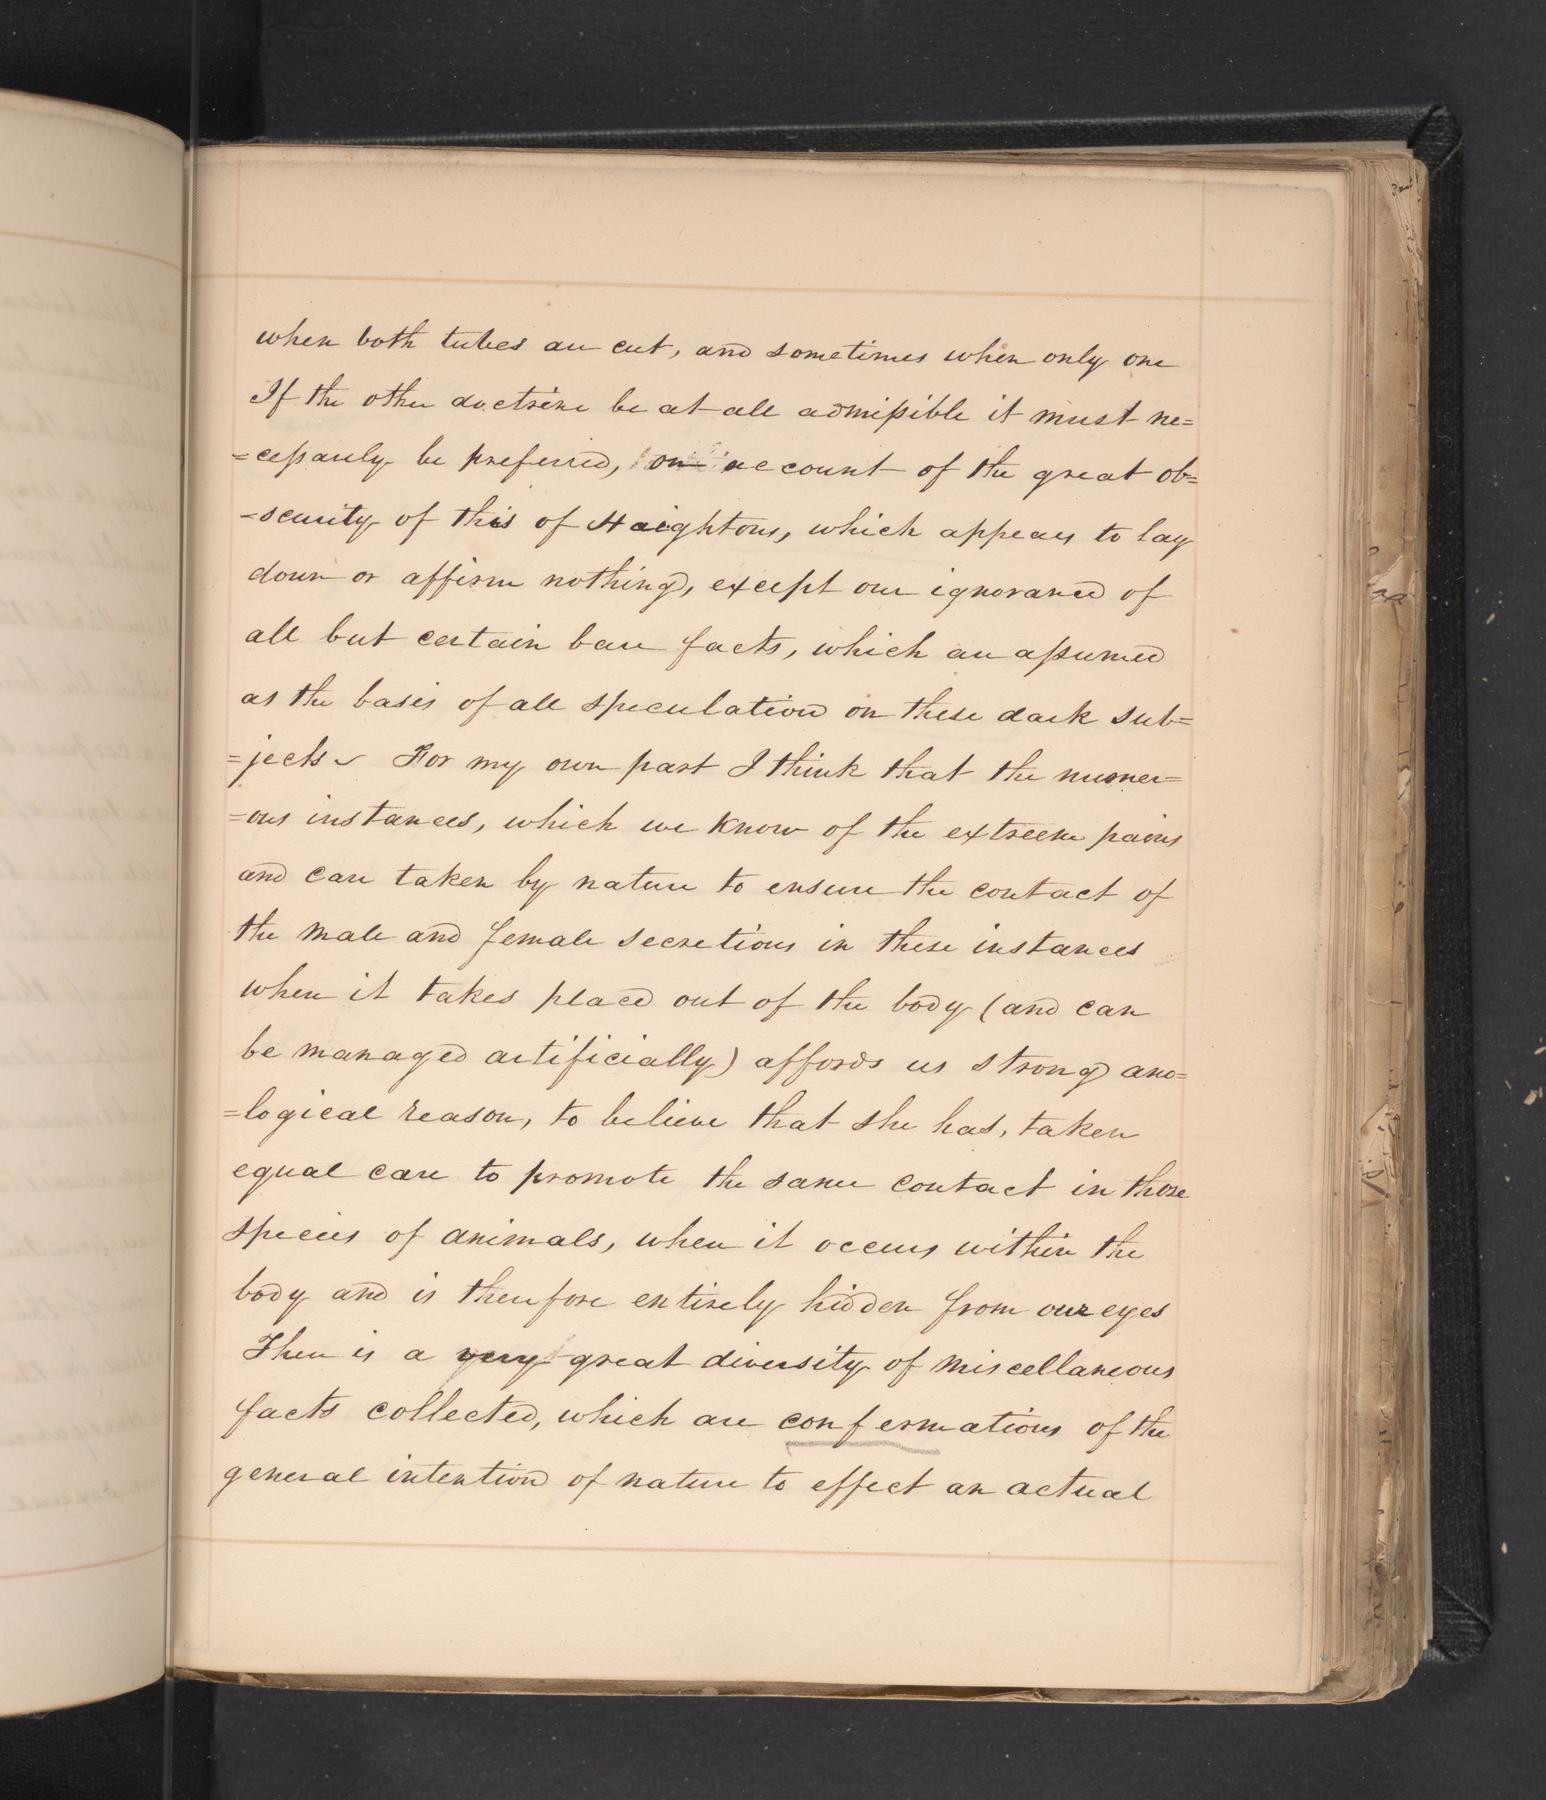 when both tubes are cut, and sometimes when only one
If the other doctrine be at all admissible it must ne=
=cessarily be preferred, on account of the great ob=
=scurity of this of Haightons, which appears to lay
down or affirm nothing, except our ignorance of
all but certain bare facts, which are assumed
as the basis of all speculation on these dark sub=
=jects ~ For my own part I think that the numer=
=ous instances, which we know of the extreem pains
and care taken by nature to ensure the contact of
the male and female secretions in these instances
when it takes place out of the body (and can
be managed artificially) affords us strong ana=
=logical reason, to believe that she has, taken
equal care to promote the same contact in those
species of animals, when it occurs within the
body and is therefore entirely hidden from our eyes
There is a very great diversity of miscellaneous
facts collected, which are confermations of the
general intention of nature to effect an actual